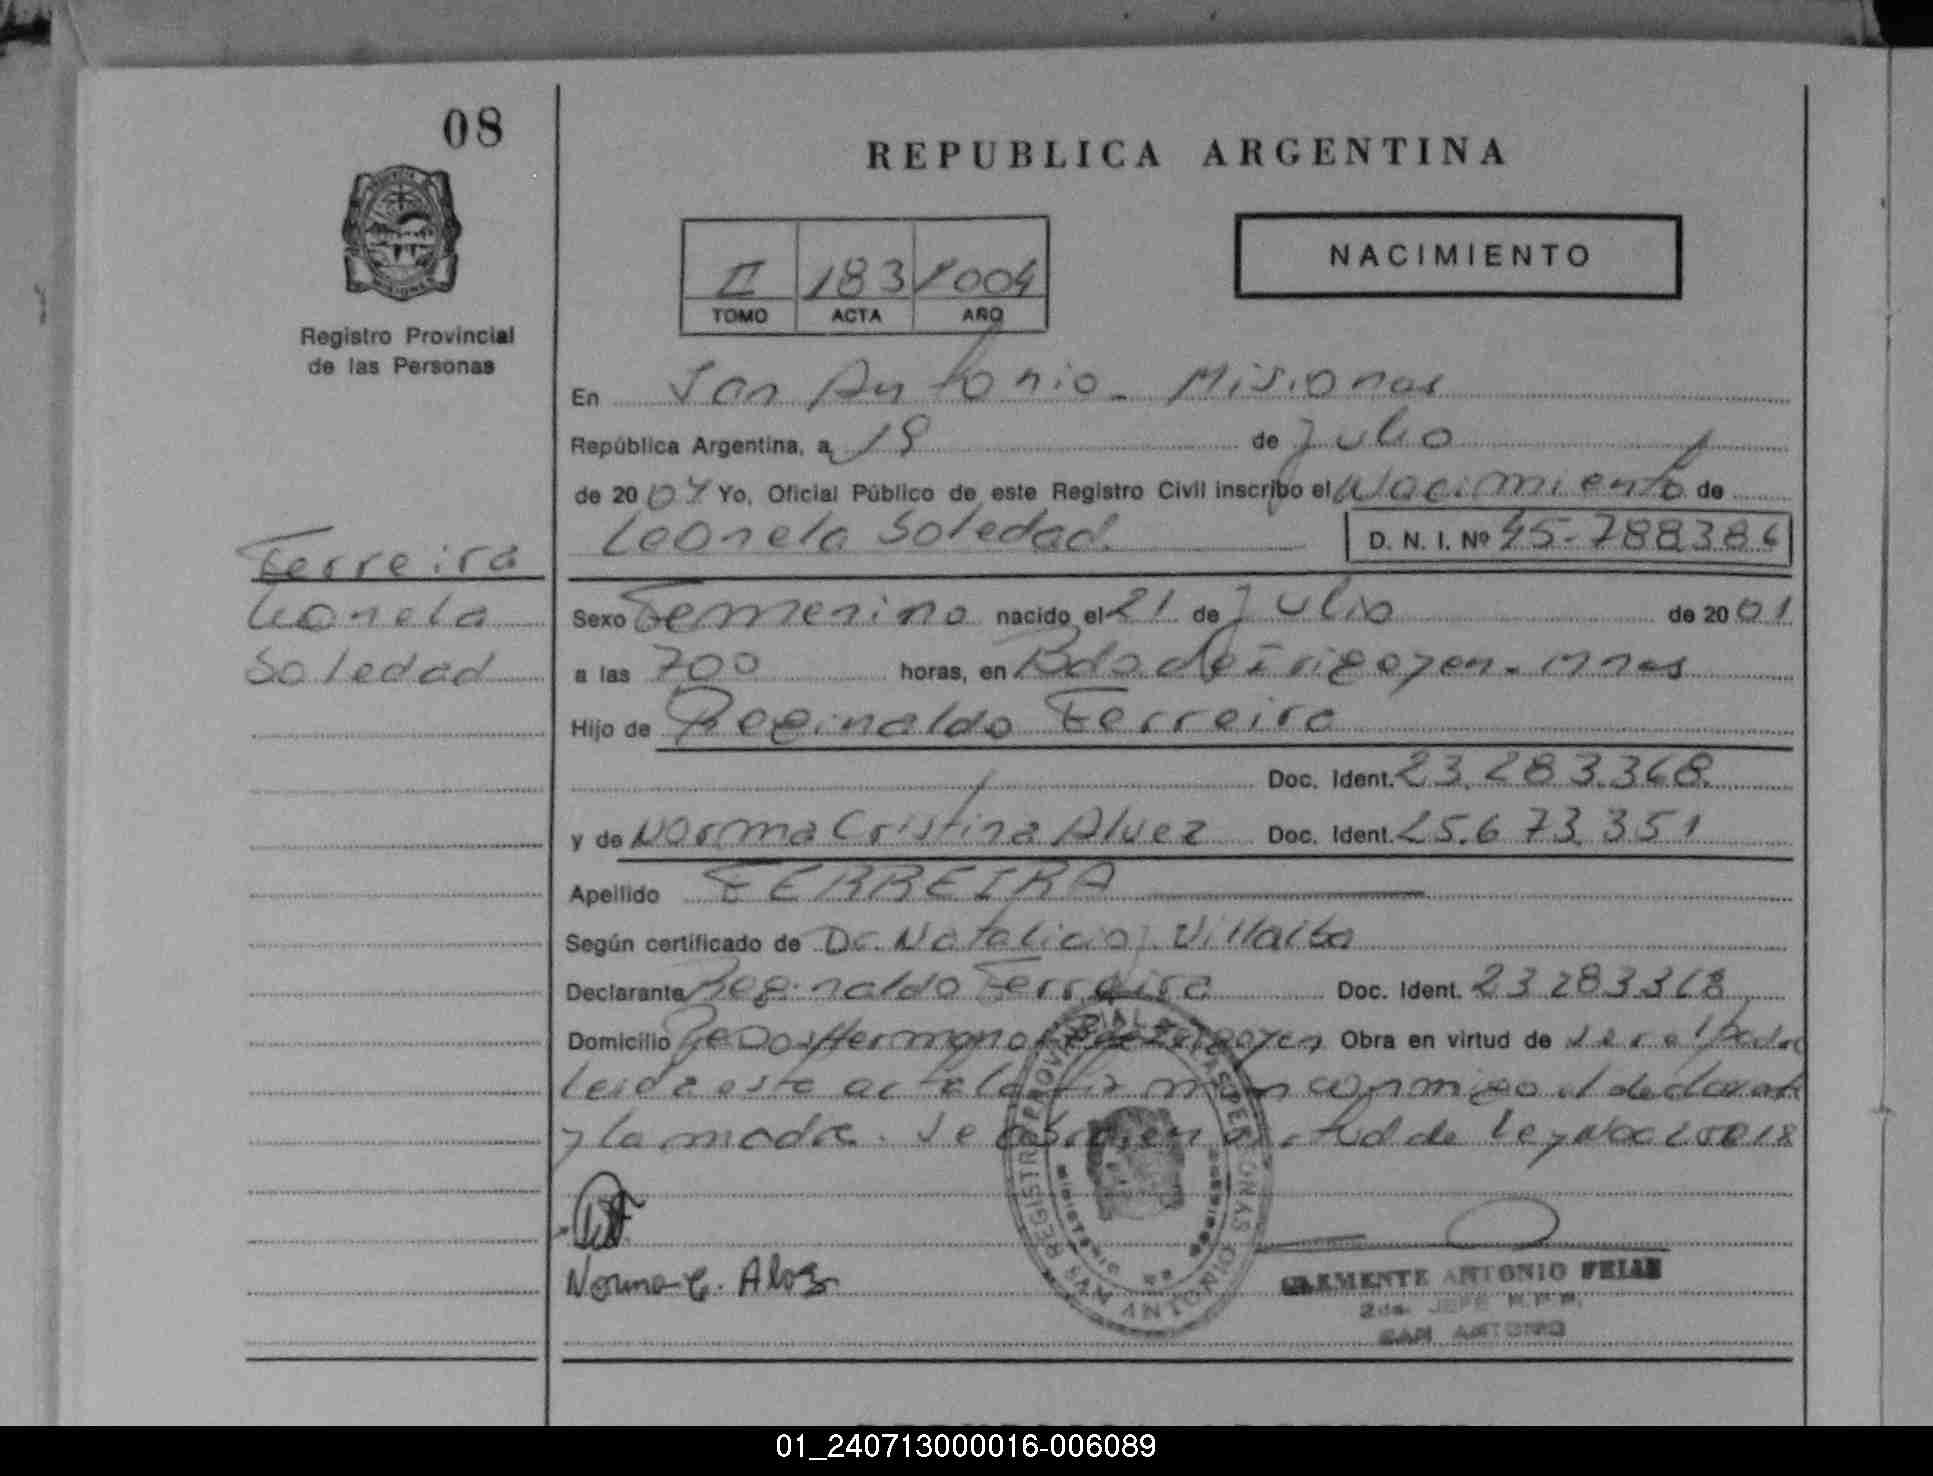 08
REPUBLICA ARGENTINA
NACIMIENTO
II 183 2004
TOMO ACTA AÑO
Registro Provincial
de las Personas
En San Antonio - Misiones
República Argentina, a 19 de Julio
de 2004 Yo, Oficial Público de este Registro Civil inscribo el Nacimiento de
Leonela Soledad D. N. I. Nº 45-788386
Ferreira
Leonela
Soledad
Sexo Femenino nacido el 21 de Julio de 2001
a las 700 horas, en Bdo. de Irigoyen - Mnes
Hijo de Reginaldo Ferreira
Doc. Ident. 23.283.368
y de Norma Cristina Alvez Doc. Ident. 25.673.351
Apellido FERREIRA
Según certificado de Dr. Natalicio J. Villalba
Declarante Reginaldo Ferreira Doc. Ident. 23283368
Domicilio Obra en virtud de
Leida este acta la firman conmigo el declarante
y la madre. Se en virtud de Ley
REGISTRO PROVINCIAL DE LAS PERSONAS
SAN ANTONIO
MINISTERIO DE GOBIERNO
Norma C. Alvez
CLEMENTE ANTONIO
2do. JEFE R.P.P.
SAN ANTONIO
01_240713000016-006089